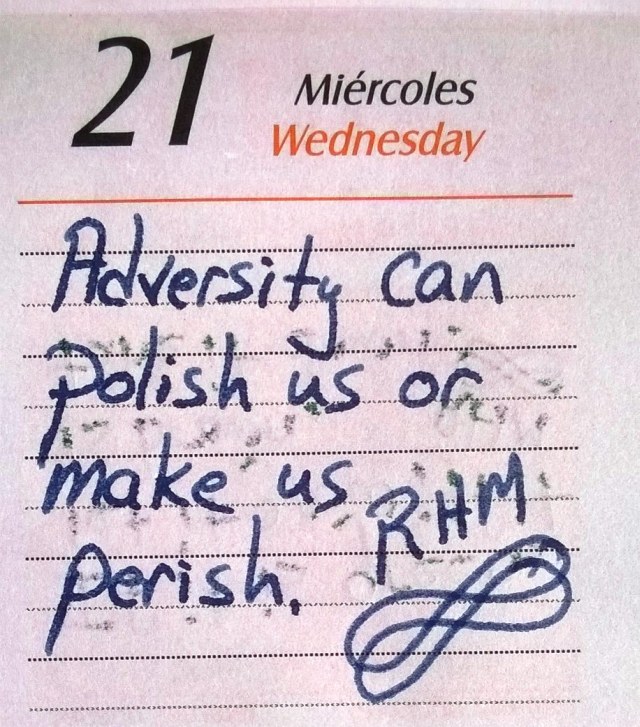 21
Miércoles
Wednesday
Adversity can
polish us or
make us
RHM
perish.